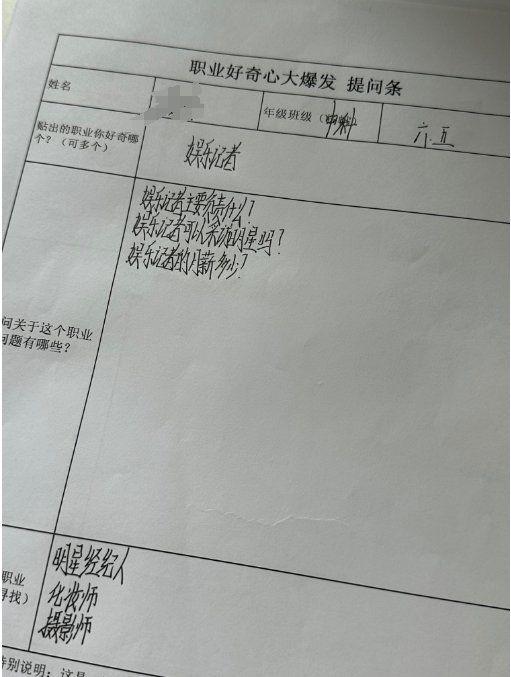 职业好奇心大爆发 提问条
姓名
年级班级（
六.五
贴出的职业你好奇哪
个？（可多个）
娱乐记者
娱乐记者主要负责什么？
娱乐记者可以采访明星吗？
娱乐记者的月薪多少？
问关于这个职业
问题有哪些？
明星经纪人
化妆师
摄影师
职业
寻找）
特别说明：这是